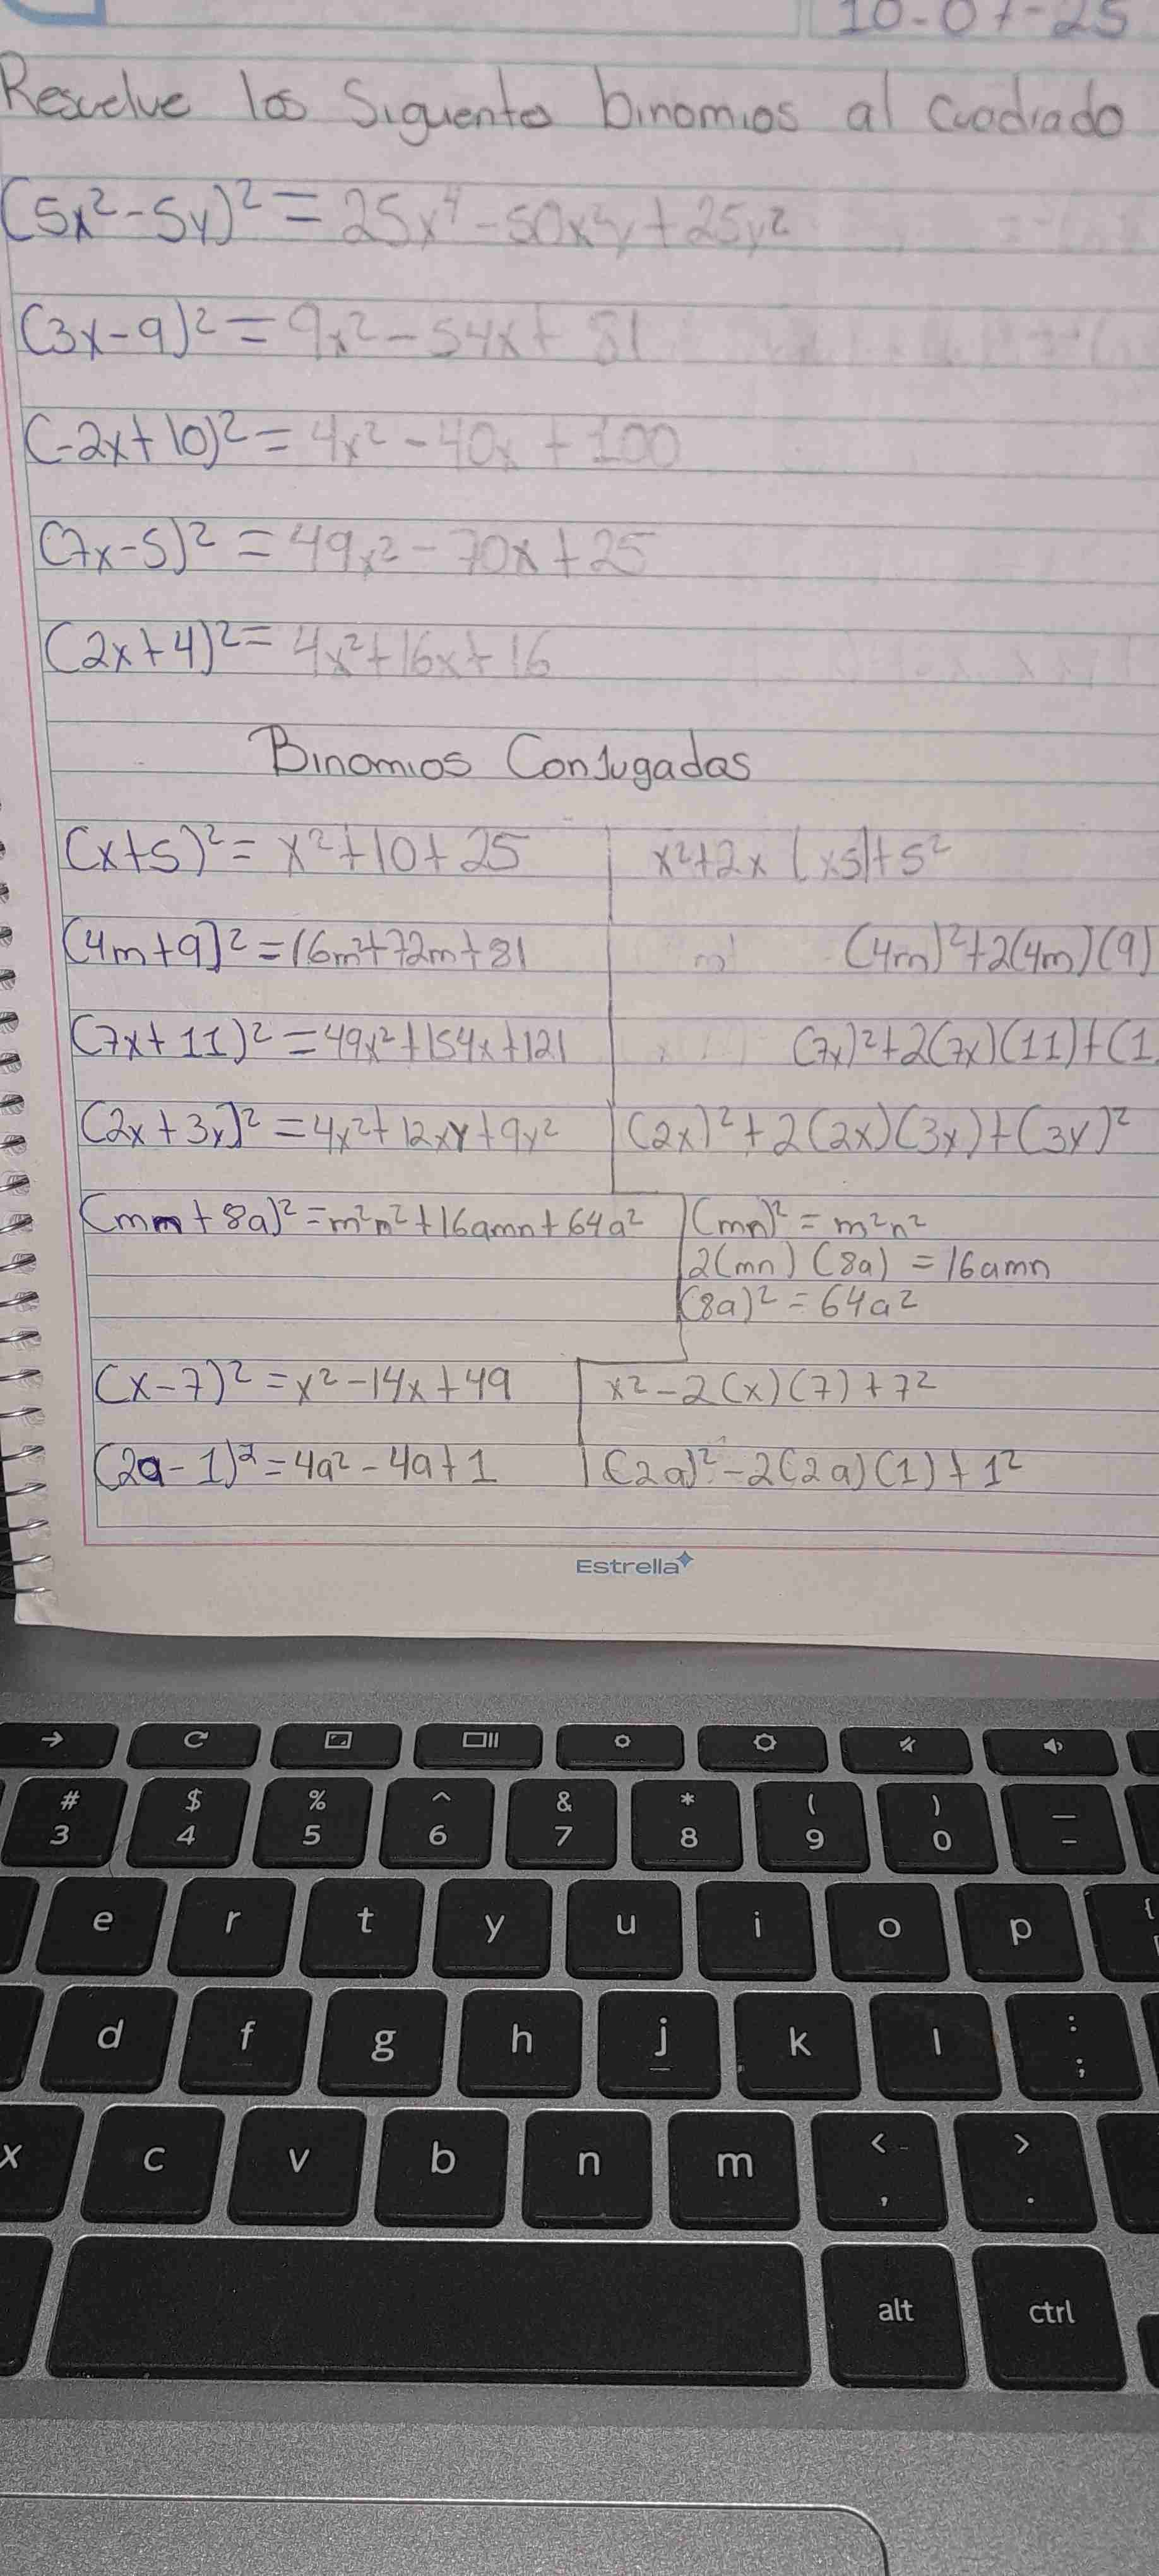 10-07-25
Resuelve los Siguientes binomios al cuadrado
(5x²-5y)² = 25x⁴-50x²y+25y²
(3x-9)² = 9x²-54x+81
(-2x+10)² = 4x²-40x+100
(7x-5)² = 49x²-70x+25
(2x+4)² = 4x²+16x+16
Binomios Conjugadas
(x+5)² = x²+10+25 x²+2x (x5)+5²
(4m+9)² = 16m²+72m+81 (4m)²+2(4m)(9)
(7x+11)² = 49x²+154x+121 (7x)²+2(7x)(11)+(1
(2x+3y)² = 4x²+12xy+9y² (2x)²+2(2x)(3y)+(3y)²
(mn+8a)² = m²n²+16amn+64a² (mn)² = m²n²
2(mn) (8a) = 16amn
(8a)² = 64a²
(x-7)² = x²-14x+49 x²-2(x)(7)+7²
(2a-1)² = 4a²-4a+1 (2a)²-2(2a)(1)+1²
Estrella
# $ % ^ & * ( ) _
3 4 5 6 7 8 9 0 -
e r t y u i o p {
d f g h j k l : ;
x c v b n m < , > .
alt ctrl